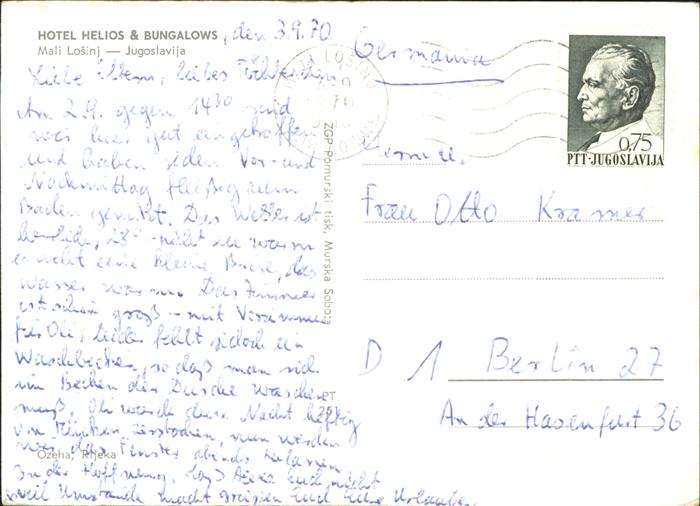 HOTEL HELIOS & BUNGALOWS
Mali Lošinj — Jugoslavija
, den 3.9.70
Liebe Eltern, liebes Töchterchen
Am 2.9. gegen 14³⁰ sind
wir hier gut eingetroffen
und haben jeden Vor- und
Nachmittag fleißig zum
Baden genutzt. Das Wetter ist
herrlich, 28° - nicht zu warm
es weht eine kleine Brise, das
Wasser warm. Das Zimmer
ist schön groß - mit Vorzimmer
für Oli, leider fehlt jedoch ein
Waschbecken, so daß man sich
im Becken der Dusche waschen
muß. Oli wurde diese Nacht heftig
von Mücken zerstochen, nun werden
wir das Fenster abends zulassen.
In der Hoffnung, daß Euch nicht
viel Umstände macht grüßen Euch Eure Urlauber
Ozeha, Rijeka
ZGP Pomurski tisk, Murska Sobota
PT
251
MALI LOŠINJ
70
Germania
0,75
PTT·JUGOSLAVIJA
Frau Otto Kramer
D 1 Berlin 27
An der Hasenfurt 36